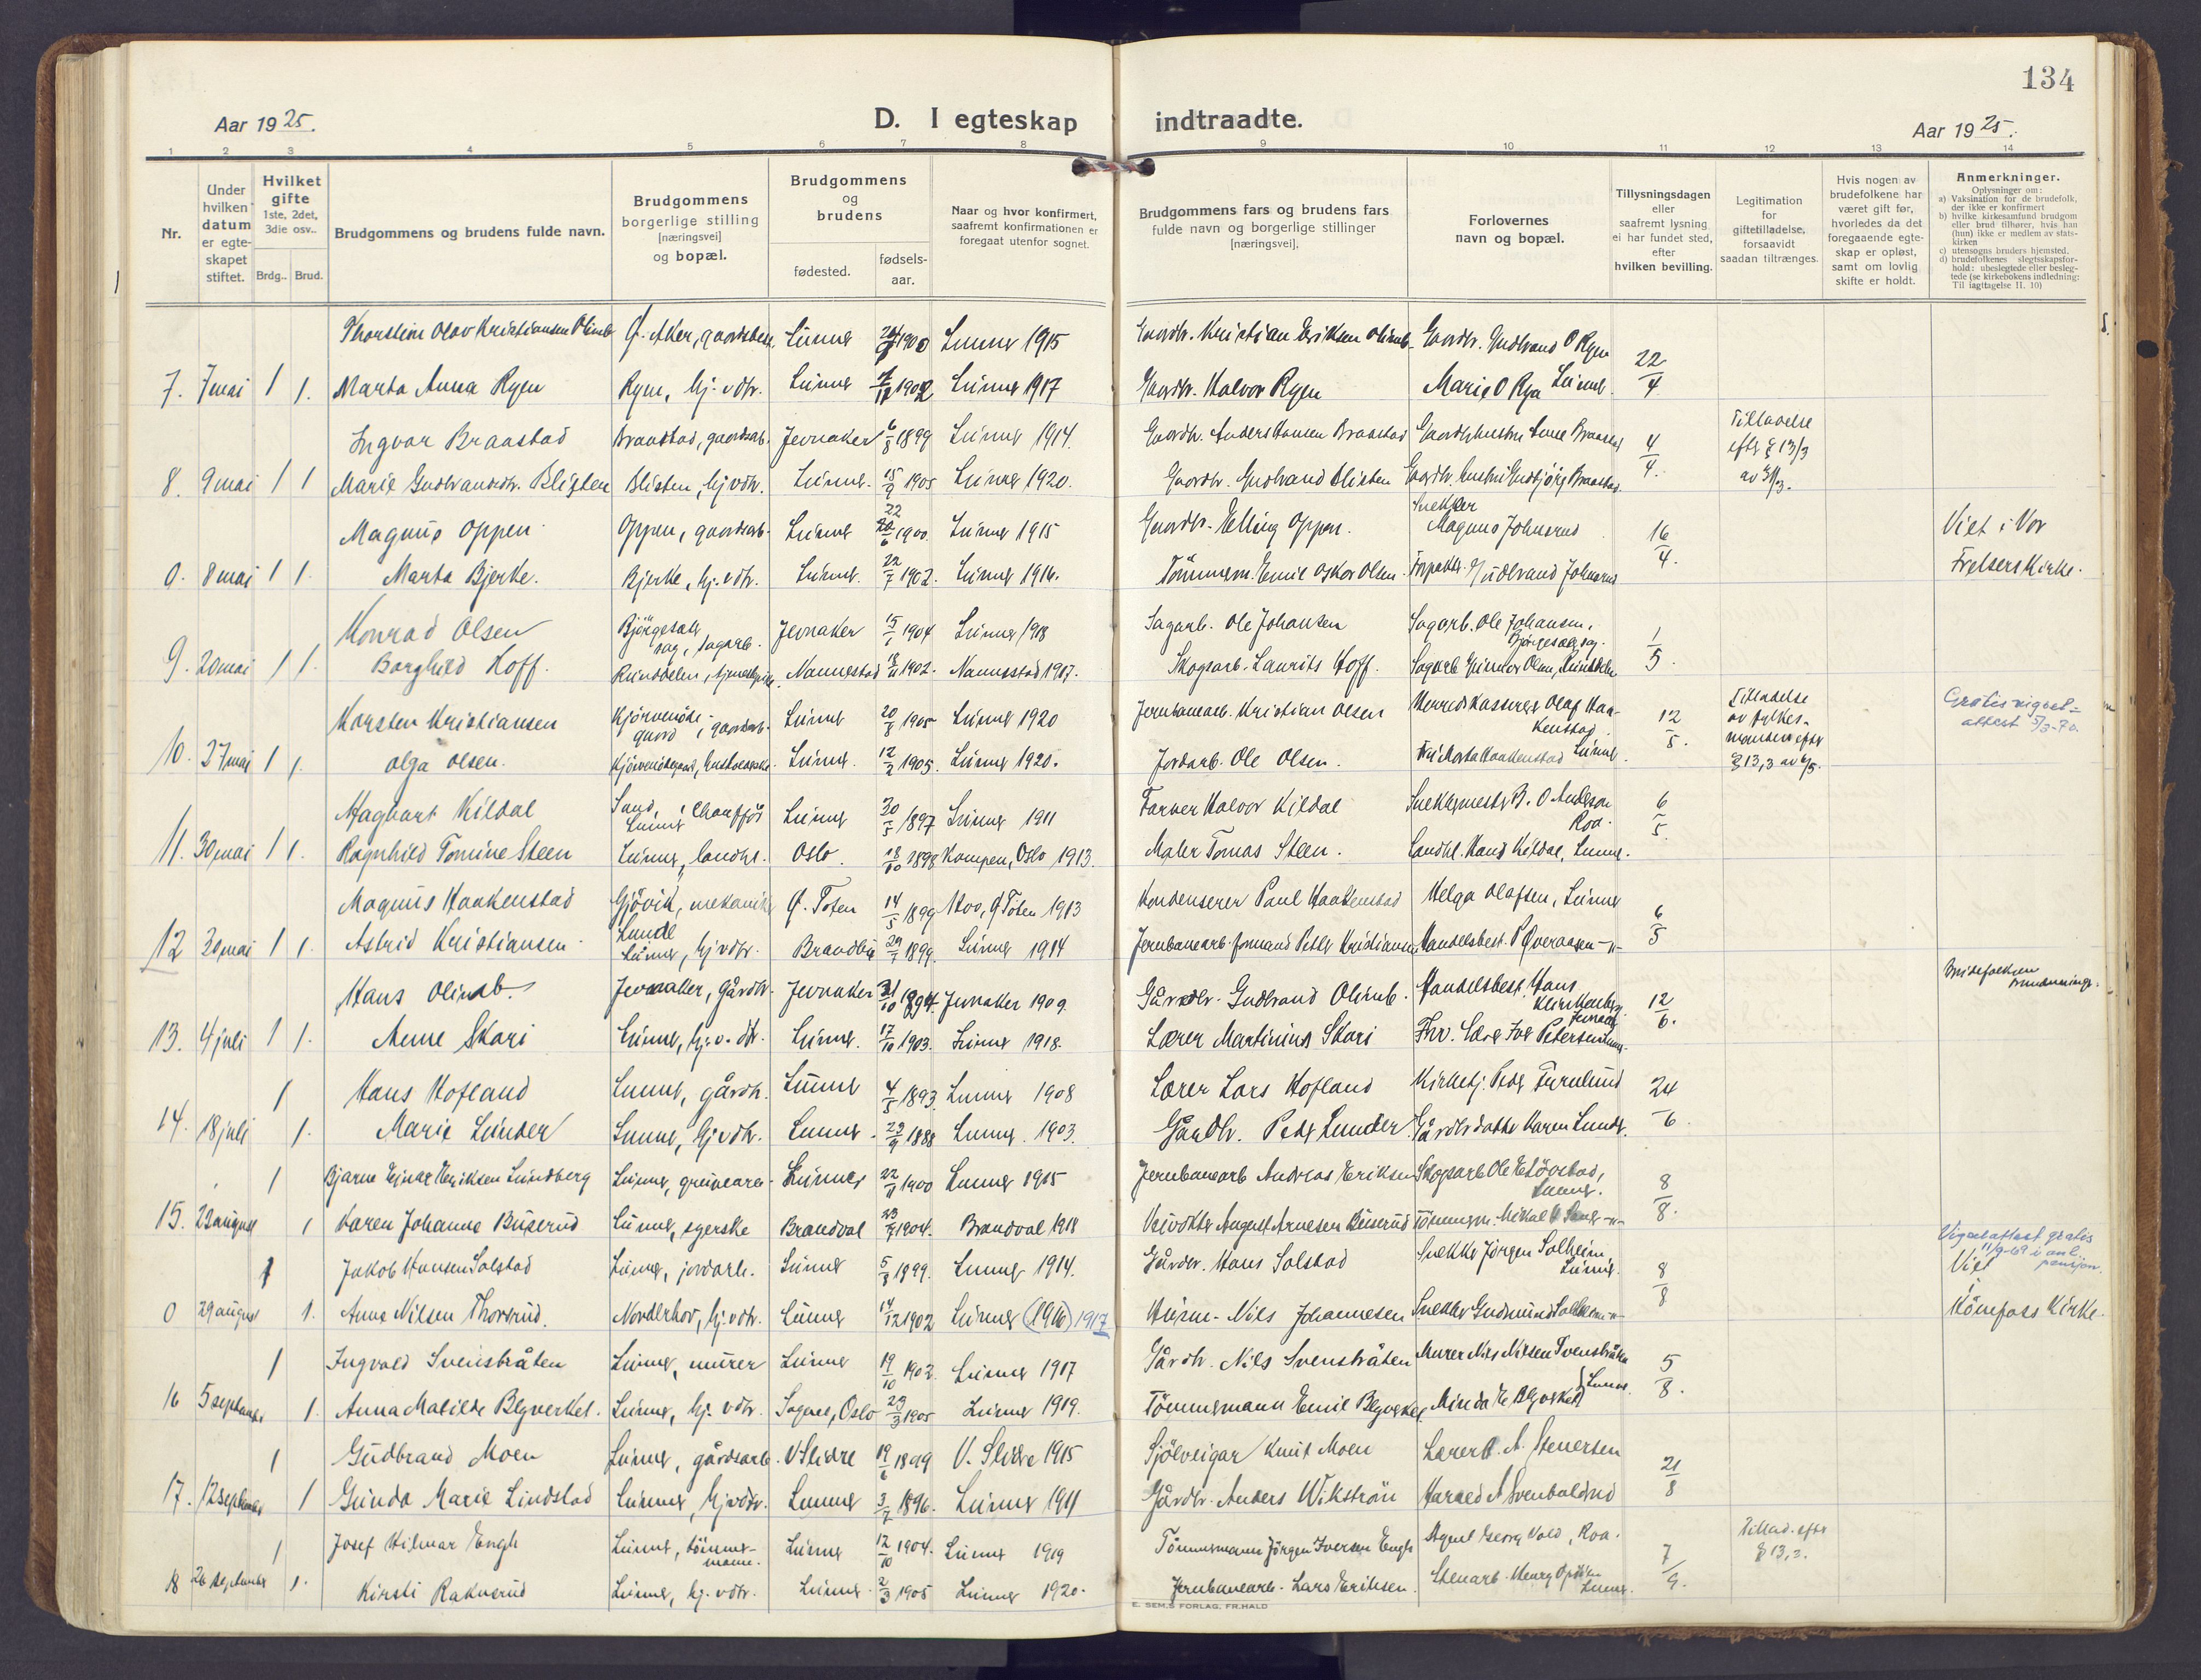 134
Aar 1925.
D. I egteskap indtraadte.
Aar 1925.
1 2 3 4 5 6 7 8 9 10 11 12 13 14
Nr.
Under hvilken datum er egteskapet stiftet.
Hvilket gifte 1ste, 2det, 3die osv..
Brdg.. Brud.
Brudgommens og brudens fulde navn.
Brudgommens borgerlige stilling [næringsvei] og bopæl.
Brudgommens og brudens
fødested.
fødsels-aar.
Naar og hvor konfirmert, saafremt konfirmationen er foregaat utenfor sognet.
Brudgommens fars og brudens fars fulde navn og borgerlige stillinger [næringsvei],
Forlovernes navn og bopæl.
Tillysningsdagen eller saafremt lysning ei har fundet sted, efter hvilken bevilling.
Legitimation for giftetilladelse, forsaavidt saadan tiltrænges.
Hvis nogen av brudefolkene har været gift før, hvorledes da det foregaaende egteskap er opløst, samt om lovlig skifte er holdt.
Anmerkninger.
Oplysninger om:
a) Vaksination for de brudefolk, der ikke er konfirmert
b) hvilke kirkesamfund brudgom eller brud tilhører, hvis han (hun) ikke er medlem av statskirken
c) utensogns bruders hjemsted.
d) brudefolkenes slegtsskapsforhold: ubeslegtede eller beslegtede (se kirkebokens indledning: Til iagttagelse II. 10)
Thorstein Olav Kristiansen Olimb Ø. Aker, gaardsbest. Lunner 1900 Lunner 1915 Gaardbr. Kristian Eriksen Olimb Gaardbr. Gudbrand O Ryen
7. 7 mai 1 1. Marta Anna Ryen Ryen, hj. v dtr. Lunner 1902 Lunner 1917 Gaardbr. Halvor Ryen Marie O Rya Lunner. 22/4
Ingvar Braastad Braastad, gaardsarb. Jevnaker 6/8 1899 Lunner 1914. Gaardbr. Anders Hansen Braastad 4/4. Tilladelse efter § 13/3 av 31/3.
8. 9 mai 1 1 Marie Gudbrandsdtr. Blisten Blisten, hj v dtr. Lunner. 15/9 1905 Lunner 1920. Gaardbr. Gudbrand Blisten Gaardbr. hustru Gudbjørg Braastad.
Magnus Oppen Oppen, gaardsarb. Lunner 22/6 1900. Lunner 1915 Gaardbr. Elling Oppen. Snekker Magnus Johnsrud 16/4. Viet i Vor
0. 8 mai 1 1. Marta Bjerke. Bjerke, hj. v dtr. Lunner. 22/7 1902. Lunner 1916. Tömmerm. Emil Oskar Olsen. Forpakter Gudbrand Johnsrud Frelsers Kirke.
Konrad Olsen Bjørgesæter sag, sagarb. Jevnaker 15/1 1904 Lunner 1918 Sagarb. Ole Johansen Sagarb. Ole Johansen, Bjørgesæter sag. 1/5.
9. 20 mai 1 1. Borghild Hoff. Nannestad 1902. Nannestad 1917. Skogsarb. Laurits Hoff.
Karsten Kristiansen Lunner 20/8 1905 Lunner 1920 Jernbanearb. Kristian Olsen Herredskasserer Olaf Haakenstad 12/5. Tilladelse av fylkesmanden efter § 13,3 av 6/5. Gratis vigselsattest 5/3-70.
10. 27 mai 1 1. Olga Olsen. Lunner. 12/2 1905. Lunner 1920. Jordarb. Ole Olsen. Marta Haakenstad Lunner.
Magbart Kildal Sand, Lunner Chauffør Lunner 30/5 1897 Lunner 1911 Farver Halvor Kildal Snekkermester B. O Anderson Roa. 6/5.
11. 30 mai 1 1. Ragnhild Tomine Steen Lunner, landhl. Oslo. 18/10 1898 Kampen, Oslo 1913. Maler Tomas Steen. Landhl. Hans Kildal, Lunner.
Magnus Haakenstad Gjøvik, mekaniker Ø. Toten 14/5 1899 Hoo, Ø Toten 1913 Kondenserer Paul Haakenstad Helga Olafsen, Lunner 6/5
12 30 mai 1 1. Astrid Kristiansen Lunde Lunner, hj v dtr. Brandbu 29/7 1899. Lunner 1914 Jernbanearb. formand Peder Kristiansen Handelsbest. P Øveraasen -"-
Hans Olimb. Jevnaker, gårdbr. Jevnaker 31/10 1894. Jevnaker 1909. Gårdbr. Gudbrand Olimb. Handelsbest. Hans Klinkenberg, Jevnaker 12/6.
13. 4 juli 1 1. Anne Skari Lunner, hj. v. dtr. Lunner. 17/10 1903. Lunner 1918. Lærer Martinius Skari Fhv. Lærer Ivar Petersen
1 Hans Hofland Lunner, gårdbr. Lunner 4/5 1893. Lunner 1908 Lærer Lars Hofland Kirketj. Peder Furulund 24/6.
14. 18 juli 1. Marie Lunder Lunner, hj v dtr. Lunner. 23/9 1888 Lunner. 1903. Gårdbr. Peder Lunder. Gårdbrdatter Karen Lunder.
1 Bjarne Ejnar Eriksen Lundberg Lunner, grubearb. Lunner 22/11 1900 Lunner 1915 Jernbanearb Andreas Eriksen Skogsarb Ole E Løvstad, Lunner. 8/8.
15. 22 august 1 Karen Johanne Buserud Lunner, syerske Brandval 1904. Brandval 1918 August Arnesen Buserud Tømmerm. Mikal Sand -"-
1 Jakob Hansen Solstad Lunner, jordarb. Lunner 5/8 1899. Lunner 1914. Gårdbr. Hans Solstad Snekker Jørgen Solheim, Lunner. 8/8 Vigselsattest gratis 11/9-69 i anl. pensjon. Viet i
0 29 august 1. Anna Nilsen Thorsrud. Norderhov, hj. v dtr. Lunner 14/12 1902 Lunner (1916) 1917 Nils Johannesen Snekker Gudmund Solheim -"- Hønefoss Kirke.
1 Ingvald Svensbråten Lunner, murer Lunner 19/10 1902. Lunner 1917 Gårdbr. Nils Svensbråten Murer Nils Nilsen Svensbråten Lunner. 5/8.
16 5 september 1. Anna Matilde Blyverket. Lunner, hj. v dtr. Sagene, Oslo 23/3 1905 Lunner 1919. Tömmermann Emil Blyverket. Minda E Blyverket
1 Gudbrand Moen Lunner, gårdsarb. V Slidre 19/6 1899 V. Slidre 1915 Sjølveigar Knut Moen Lærer A. Stenersen 21/8
17. 12 september 1 Gunda Marie Lindstad Lunner, hj v dtr. Lunner 3/7 1896. Lunner 1911 Gårdbr. Anders Wikström Harald A Svenbalrud
1 Josef Hilmar Engh Lunner, tömmermann. Lunner 12/10 1904. Lunner 1919 Tömmermann Jørgen Iversen Engh Georg Vold, Roa. 7/9. Tillad. efter § 13,3.
18 26 september 1. Kirsti Raknerud Lunner, hj. v dtr. Lunner. 2/3 1905 Lunner 1920. Jernbanearb. Lars Eriksen. Stenarb. Henry Lunner.
E. SEM.S FORLAG, FR.HALD